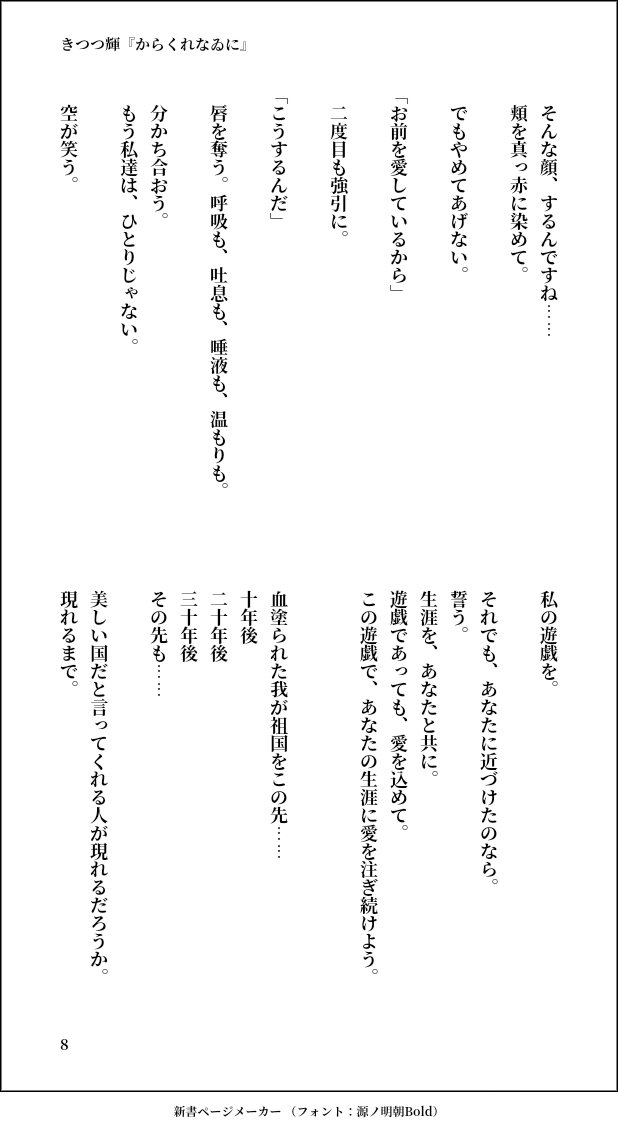 きつつ輝『からくれなゐに』
そんな顔、するんですね……
頬を真っ赤に染めて。
でもやめてあげない。
「お前を愛しているから」
二度目も強引に。
「こうするんだ」
唇を奪う。呼吸も、吐息も、唾液も、温もりも。
分かち合おう。
もう私達は、ひとりじゃない。
空が笑う。
私の遊戯を。
それでも、あなたに近づけたのなら。
誓う。
生涯を、あなたと共に。
遊戯であっても、愛を込めて。
この遊戯で、あなたの生涯に愛を注ぎ続けよう。
血塗られた我が祖国をこの先……
十年後
二十年後
三十年後
その先も……
美しい国だと言ってくれる人が現れるだろうか。
現れるまで。
8
新書ページメーカー（フォント：源ノ明朝Bold）